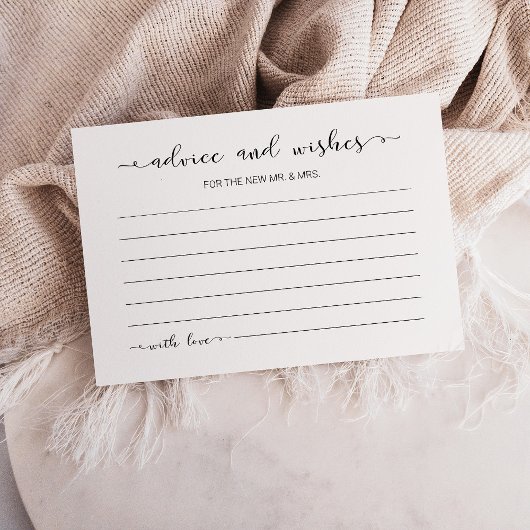 advice and wishes
FOR THE NEW MR. & MRS.
with love